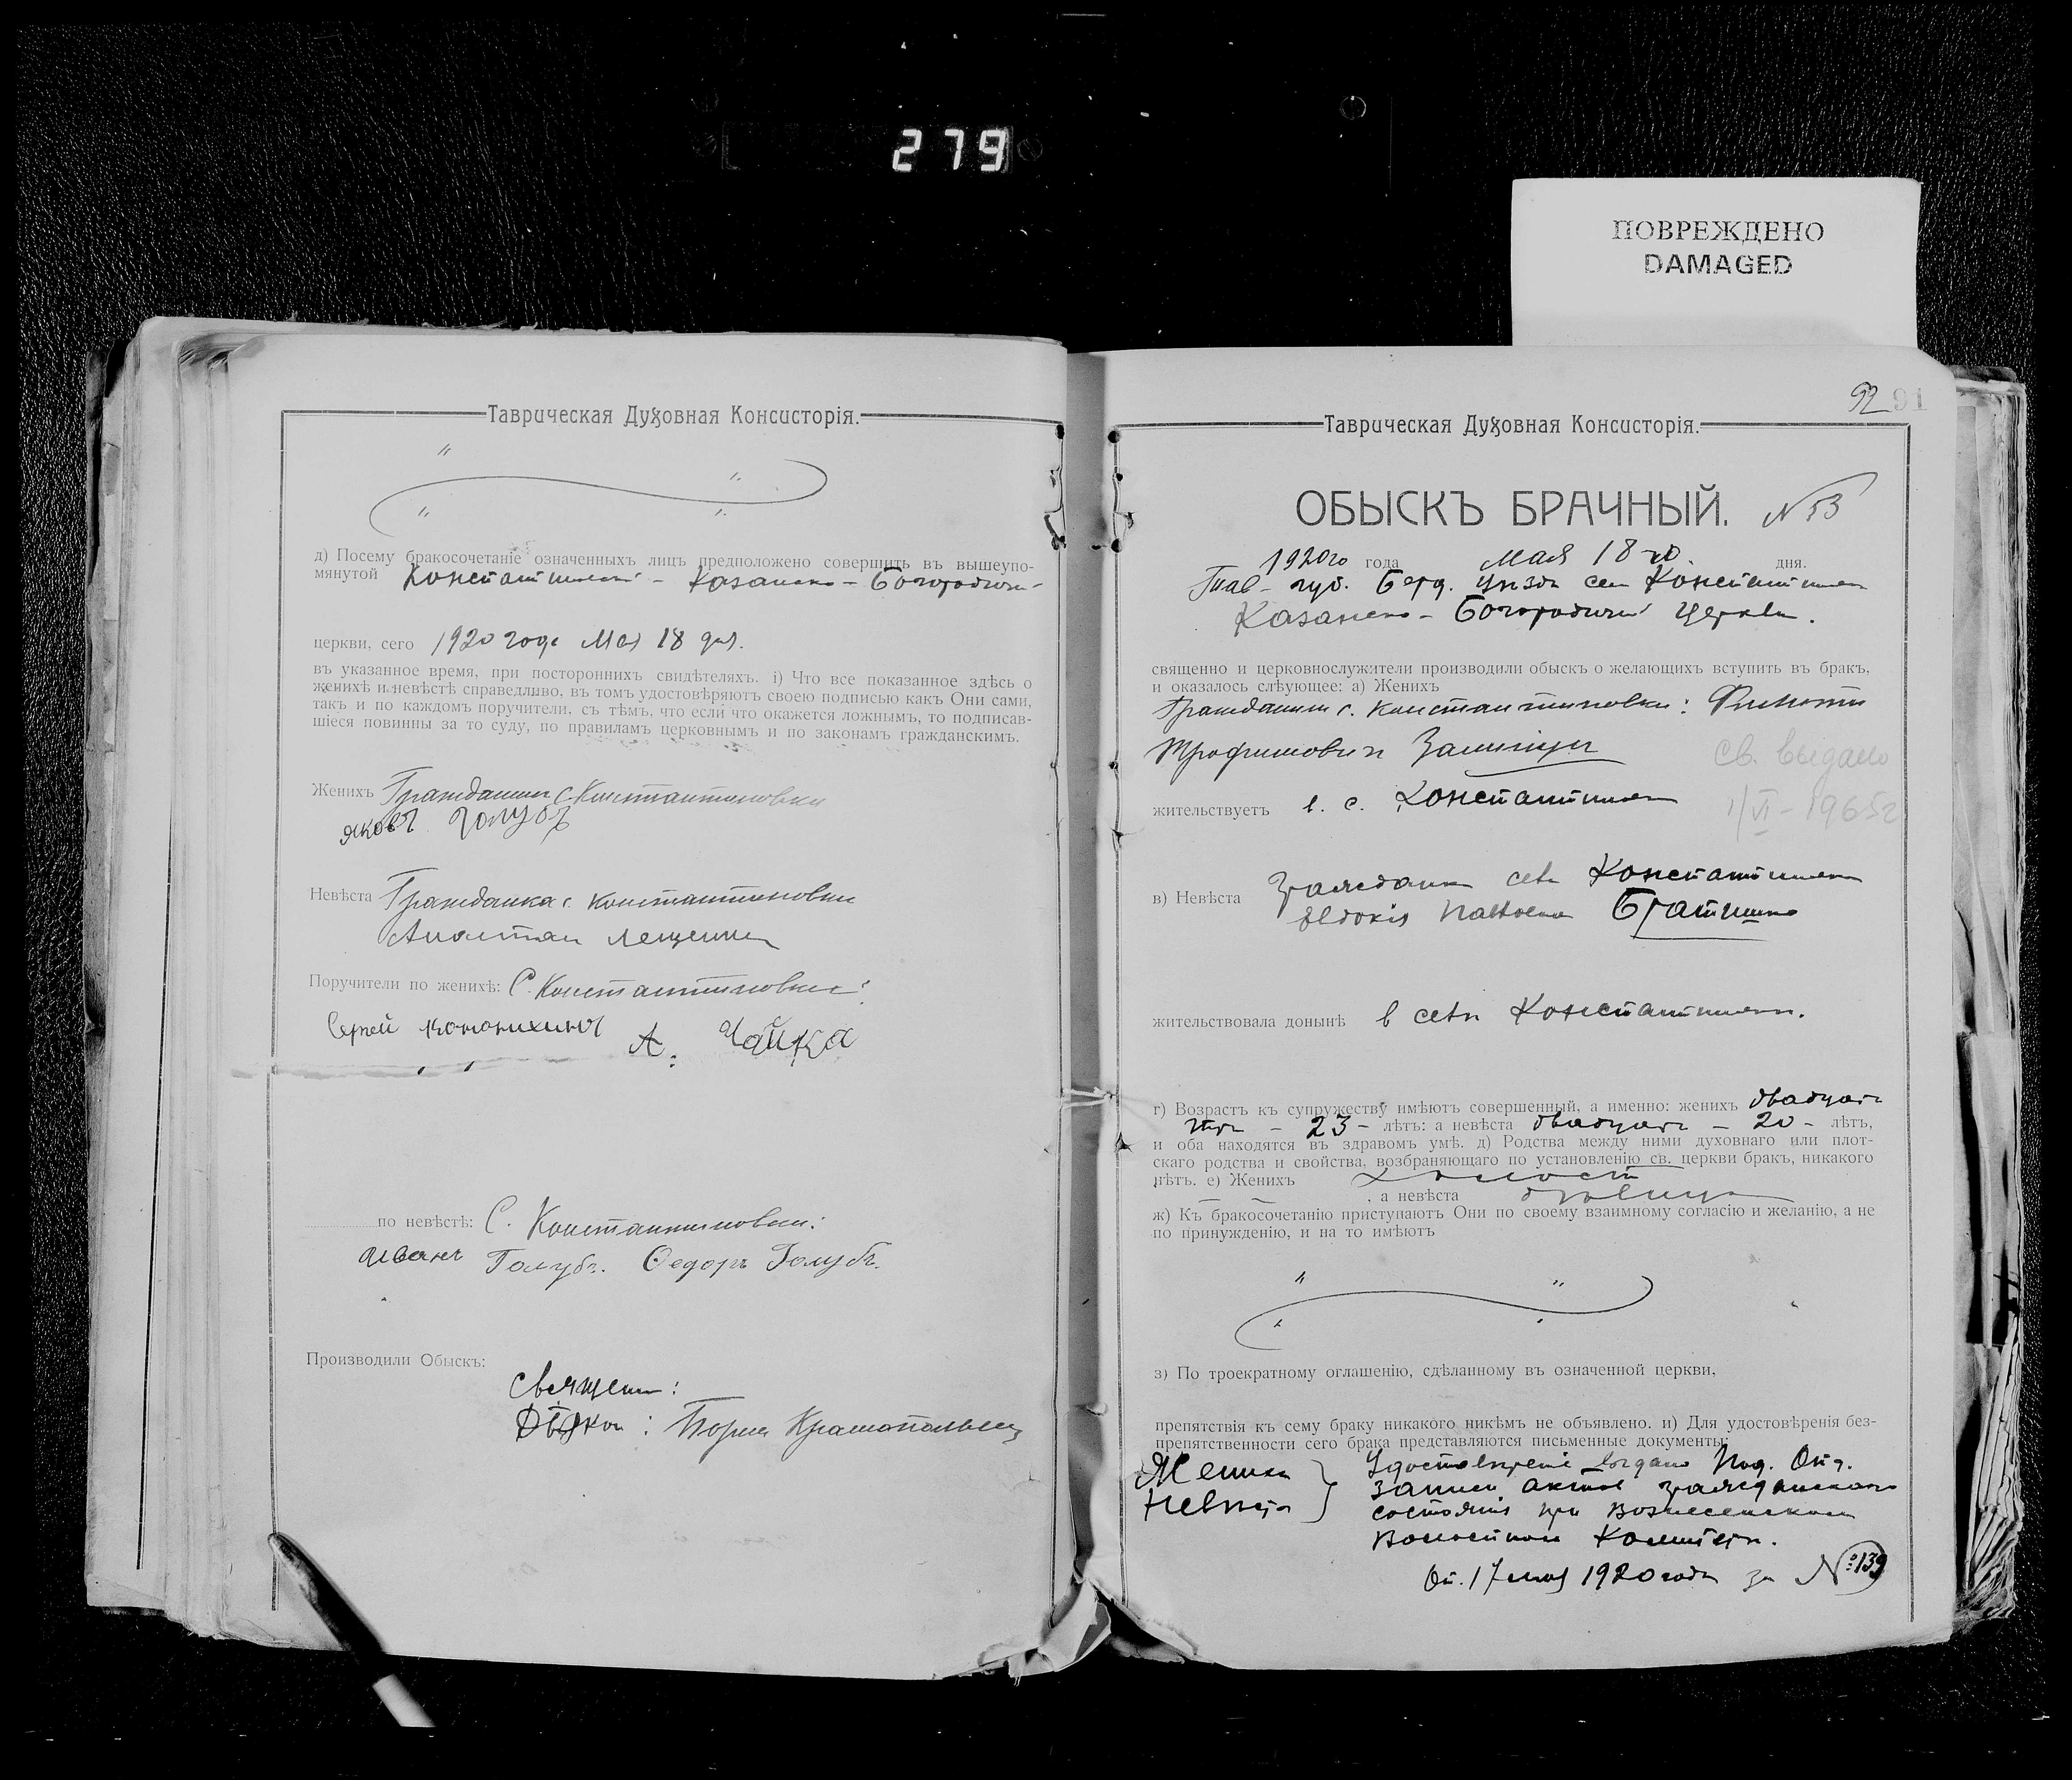 279
ПОВРЕЖДЕНО
DAMAGED
Таврическая Духовная Консисторія.
д) Посему бракосочетаніе означенныхъ лицъ предположено совершить въ вышеупо-
мянутой Казанско - Богородичн-
церкви, сего 1920 года Мая 18 дня.
въ указанное время, при постороннихъ свидѣтеляхъ. і) Что все показанное здѣсь о
женихѣ и невѣстѣ справедливо, въ томъ удостовѣряютъ своею подписью какъ Они сами,
такъ и по каждомъ поручители, съ тѣмъ, что если что окажется ложнымъ, то подписав-
шіеся повинны за то суду, по правиламъ церковнымъ и по законамъ гражданскимъ.
Женихъ Гражданин с. Константиновки
яковъ голубъ
Невѣста Гражданка с. Константиновки
Лещенко
Поручители по женихѣ: С. Константиновки:
Сергей А. Чайка
по невѣстѣ: С. Константиновки:
Иванъ Голубъ. Ѳедоръ Голубъ.
Производили Обыскъ:
Священн:
92 91
Таврическая Духовная Консисторія.
ОБЫСКЪ БРАЧНЫЙ. № 53
1920го года мая 18 го дня.
Тав- губ. Берд. уѣзда
Казанско- Богородичн церкви.
священно и церковнослужители производили обыскъ о желающихъ вступить въ бракъ,
и оказалось слѣующее: а) Женихъ
Гражданин с. Константиновки:
Трофимович
св. выдано
жительствуетъ в. с.
1/VI - 1965г
в) Невѣста
жительствовала донынѣ в селѣ
г) Возрастъ къ супружеству имѣютъ совершенный, а именно: женихъ двадцати
три - 23 - лѣтъ: а невѣста двадцати - 20 - лѣтъ,
и оба находятся въ здравомъ умѣ. д) Родства между ними духовнаго или плот-
скаго родства и свойства, возбраняющаго по установленію св. церкви бракъ, никакого
нѣтъ. е) Женихъ холост
, а невѣста девица
ж) Къ бракосочетанію приступаютъ Они по своему взаимному согласію и желанію, а не
по принужденію, и на то имѣютъ
з) По троекратному оглашенію, сдѣланному въ означенной церкви,
препятствія къ сему браку никакого никѣмъ не объявлено. и) Для удостовѣренія без-
препятственности сего брака представляются письменные документы:
Жениха Удостовѣреніе выдано Под. Отд.
Невѣста записи актов гражданскаго
состоянія при Вознесенском
Волостном Комитетѣ.
От. 17 мая 1920 года за № 139